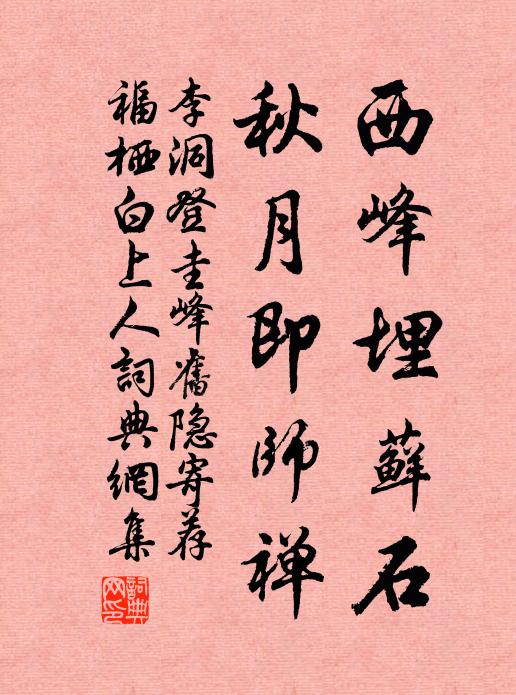 西峰埋蘚石
秋月即師禅
李洞登圭峰舊隐寄荐
福栖白上人詞典網集
詞典网印